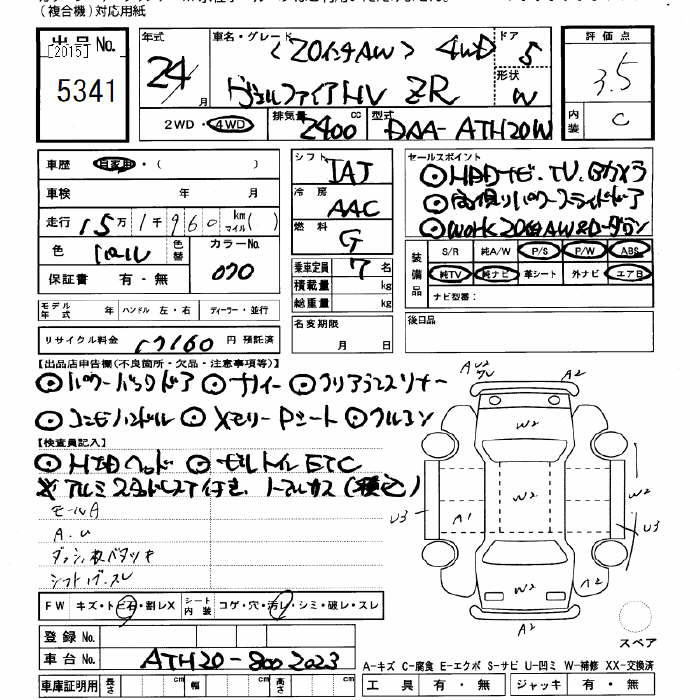 (複合機)対応用紙
出品 No.
[2015]
5341
年式 24 月
車名・グレード 〈20インチAW〉 4WD
ヴェルファイアHV ZR
ドア 5
形状 W
2WD・4WD
排気量 2400 cc
型式 DAA- ATH20W
評価点 3.5
内装 C
車歴 自家用・( )
車検 年 月
走行 15万1千960 km マイル( )
色 パール 色替 カラーNo. 070
保証書 有・無
シフト IAT
冷房 AAC
燃料 G
乗車定員 7 名
積載量 kg
総重量 kg
セールスポイント
◎HDDナビ.TV.Bカメラ
◎両側パワースライドドア
◎WORK20インチAW&ローダウン
装備品 S/R 純A/W P/S P/W ABS
純TV 純ナビ 革シート 外ナビ エアB
ナビ型番:
モデル年式 年 ハンドル 左・右 ディーラー・並行
リサイクル料金 17160 円 預託済
名変期限 月 日
後日品
【出品店申告欄(不良箇所・欠品・注意事項等)】
◎パワーバックドア ◎ナノイー ◎クリアランスソナー
◎コンビハンドル ◎メモリーPシート ◎クルコン
【検査員記入】
◎HIDヘッド ◎ビルトインETC
※アルミ
モールA
A.U
シフトノブ スレ
FW キズ・トビ石・割レX シート内装 コゲ・穴・汚レ・シミ・破レ・スレ
登録 No.
車台 No. ATH20-8002023
車庫証明用 長さ cm 幅 cm 高さ cm
A U2
A2
W2
U3 A1 W2 W2 U3
W2
A2 A2
スペア
A-キズ C-腐食 E-エクボ S-サビ U-凹ミ W-補修 XX-交換済
工具 有・無 ジャッキ 有・無